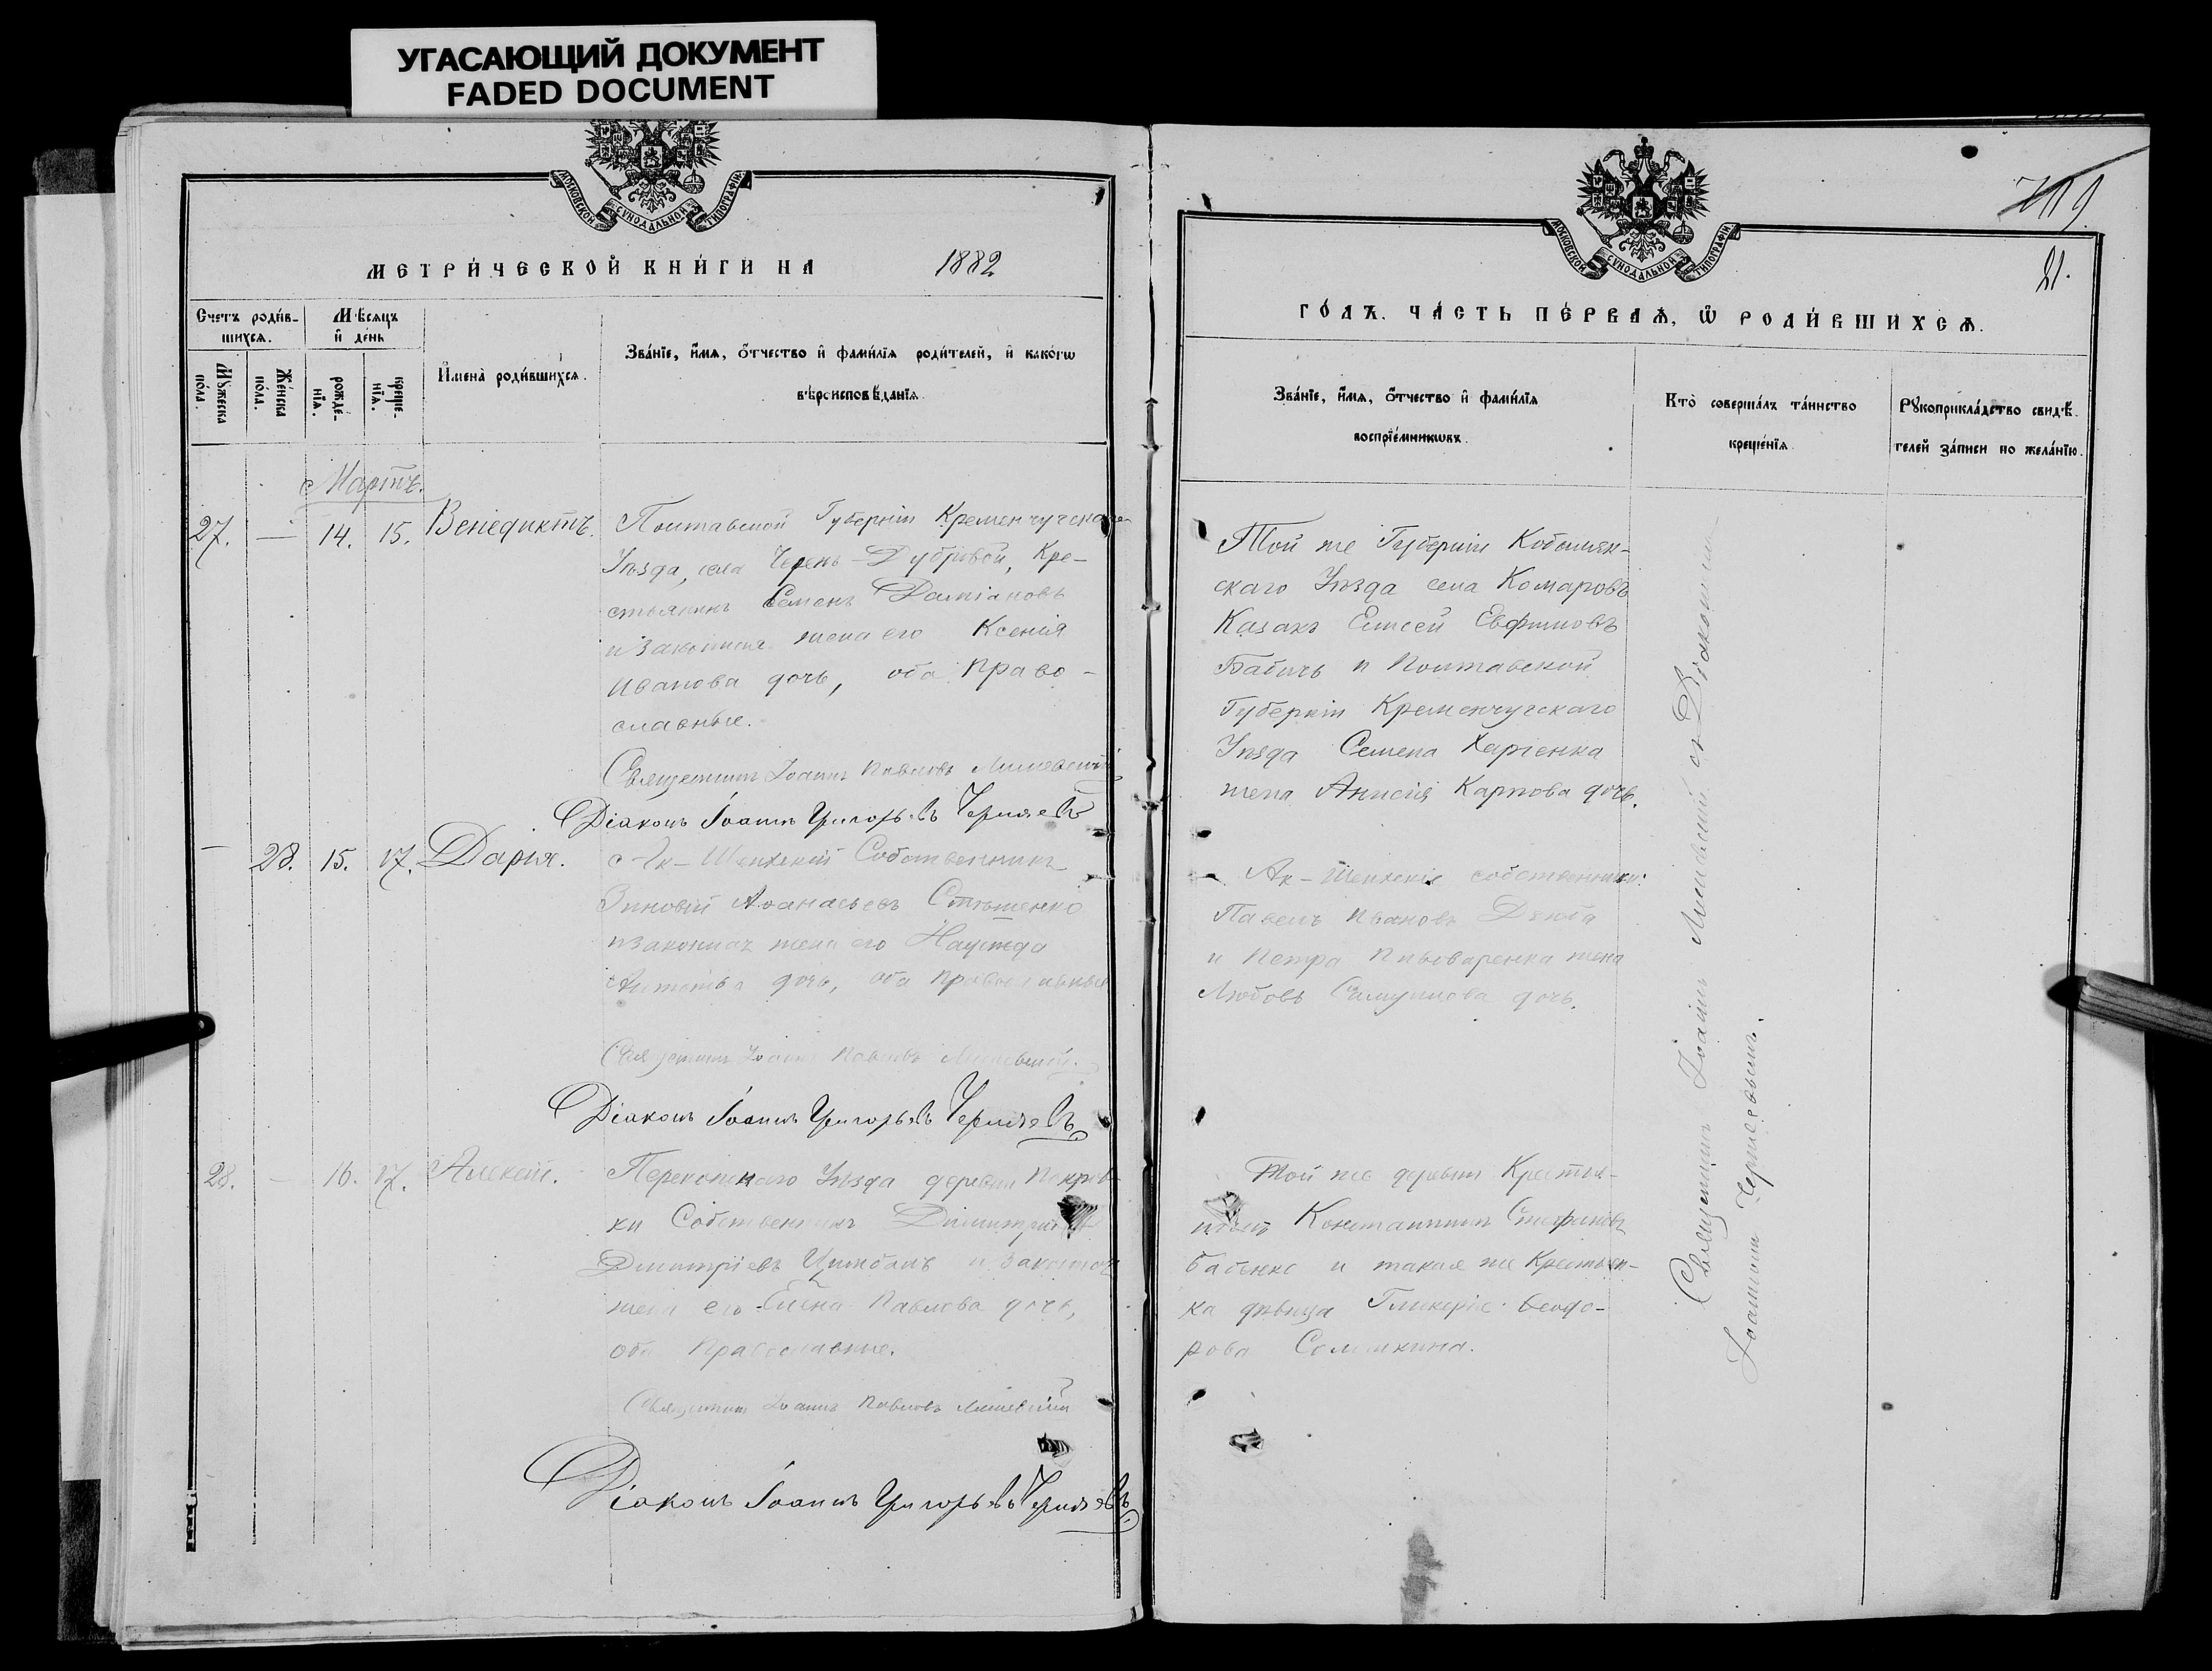 УГАСАЮЩИЙ ДОКУМЕНТ
FADED DOCUMENT
МОСКОВСКОЙ СѴНОДАЛЬНОЙ ТИПОГРАФІИ
МЕТРИ́ЧЕСКОЙ КНИ́ГИ НА 1882
Счетъ роди́вшихся.
Мѣсяцъ и день
Мꙋжеска пола.
Женска пола.
рождѐнїя.
крещенїя.
Имена̀ роди́вшихся.
Зва́нїе, и́мя, о́тчество и фами́лїя роди́телей, и како́гѡ
вѣроисповѣданїя.
Мартъ.
27. — 14. 15. Венедиктъ.
Полтавской Губерніи Кременчугскаго
Уѣзда, села Черень-Дубровы, Кре-
стьянинъ Семенъ Даміановъ
и законная жена его Ксенія
Иванова дочь, оба право-
славные.
Священникъ Іоаннъ Павловъ
Діаконъ Іоаннъ Григорьевъ Черняевъ
— 28. 15. 17. Дарья.
Собственникъ
Зиновій Аѳанасьевъ
и законная жена его
дочь, оба православные
Священникъ Іоаннъ Павловъ
Діаконъ Іоаннъ Григорьевъ Черняевъ
28. — 16. 17. Алексѣй.
Перекопскаго Уѣзда деревни Покров-
ки Собственникъ Димитрій
Димитріевъ Цимбалъ и законная
жена его Елена Павлова дочь,
оба Православные.
Священникъ Іоаннъ Павловъ
Діаконъ Іоаннъ Григорьевъ Черняевъ
719
81.
МОСКОВСКОЙ СѴНОДАЛЬНОЙ ТИПОГРАФІИ
ГО́ДЪ. ЧА́СТЬ ПЕ́РВАЯ, Ѿ РОДИ́ВШИХСЯ.
Зва́нїе, и́мя, о́тчество и фами́лїя
воспрїе́мникѡвъ.
Кто̀ соверша́лъ та́инство
креще́нїя
Рꙋкоприкла́дство свидѣ́
телей за́писи по жела́нїю.
Той же Губерніи Кобыляк-
скаго Уѣзда села Комаровъ
Казакъ Елисей Евфимовъ
Бабичъ и Полтавской
Губерніи Кременчугскаго
Уѣзда Семена Харіенка
жена Анисія Карпова дочь.
собственники:
Павелъ Ивановъ
и Петра Пивоваренка жена
Любовь дочь.
Той же деревни Крестья-
нинъ Константинъ Стефановъ
Бабенко и такая же Крестьян-
ка дѣвица Гликерія Ѳеодо-
рова
Священникъ Іоаннъ съ Діакономъ
Іоанномъ Черняевымъ.